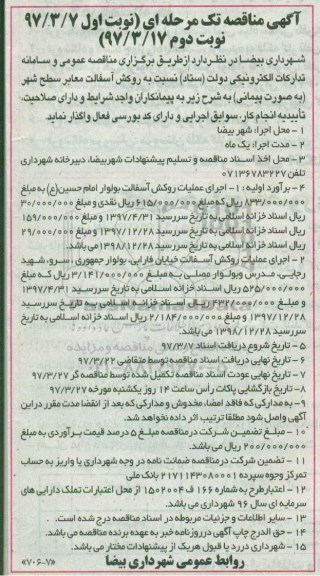 آگهی مناقصه تک مرحله ای (نوبت اول ۹۷/۳/۷
نوبت دوم ۹۷/۳/۱۷)
شهرداری بیضا در نظر دارد از طریق برگزاری مناقصه عمومی و سامانه
تدارکات الکترونیکی دولت (ستاد) نسبت به روکش آسفالت معابر سطح شهر
(به صورت پیمانی) به شرح زیر به پیمانکاران واجد شرایط و دارای صلاحیت،
تأییدیه انجام کار، سوابق اجرایی و دارای کد بورسی فعال واگذار نماید.
۱ - محل اجرا: شهر بیضا
۲ - مدت اجرا: یک ماه
۳ - محل اخذ اسناد مناقصه و تسلیم پیشنهادات شهر بیضا، دبیرخانه شهرداری
تلفن ۰۷۱۳۶۷۸۳۲۲۷
۴ - برآورد اولیه: ۱- اجرای عملیات روکش آسفالت بولوار امام حسین(ع) به مبلغ
۸۳۳/۰۰۰/۰۰۰ ریال که مبلغ ۶۱۵/۰۰۰/۰۰۰ ریال نقدی و مبلغ ۳۰/۰۰۰/۰۰۰
ریال اسناد خزانه اسلامی به تاریخ سررسید ۱۳۹۷/۴/۳۱ و مبلغ ۱۵۹/۰۰۰/۰۰۰
ریال اسناد خزانه اسلامی به تاریخ سررسید ۱۳۹۷/۱۲/۲۸ و مبلغ ۲۹/۰۰۰/۰۰۰
ریال اسناد خزانه اسلامی به تاریخ سررسید ۱۳۹۸/۱۲/۲۸ می باشد.
۲ - اجرای عملیات روکش آسفالت خیابان فارابی، بولوار جمهوری، سرو، شهید
رجایی، مدرس و بولوار مصلی به مبلغ ۳/۱۴۱/۰۰۰/۰۰۰ ریال که مبلغ
۵۲۵/۰۰۰/۰۰۰ ریال اسناد خزانه اسلامی به تاریخ سررسید ۱۳۹۷/۴/۳۱
و مبلغ ۴۳۲/۰۰۰/۰۰۰ ریال اسناد خزانه اسلامی به تاریخ سررسید
۱۳۹۷/۱۲/۲۸ و مبلغ ۲/۱۸۴/۰۰۰/۰۰۰ ریال اسناد خزانه اسلامی به تاریخ
سررسید ۱۳۹۸/۱۲/۲۸ می باشد.
۵ - تاریخ شروع دریافت اسناد ۹۷/۳/۷
۶ - تاریخ نهایی دریافت اسناد مناقصه توسط متقاضی ۹۷/۳/۲۲
۷ - تاریخ نهایی عودت اسناد مناقصه تکمیل شده توسط مناقصه گر ۹۷/۳/۲۷
۸ - تاریخ بازگشایی پاکات رأس ساعت ۱۴ روز یکشنبه مورخه ۹۷/۳/۲۷
۹ - به مدارکی که فاقد امضا، مخدوش و مدارکی که بعد از انقضا مدت مقرر در این
آگهی واصل شود مطلقا ترتیب اثر داده نخواهد شد.
۱۰ - مبلغ تضمین شرکت در مناقصه مبلغ ۵ درصد قیمت برآوردی به مبلغ
۲۰۰/۰۰۰/۰۰۰ ریال می باشد.
۱۱ - تضمین شرکت در مناقصه ضمانت نامه در وجه شهرداری یا واریز به حساب
تمرکز وجوه سپرده ۲۱۷۱۱۴۳۰۸۰۰۰۱ بانک ملی
۱۲ - اعتبار طرح به شماره ۱۶۶ ف ۱۵۰۲۰۰۴ از محل اعتبارات تملک دارایی های
سرمایه ای سال ۹۶ شهرداری می باشد.
۱۳ - سایر اطلاعات و جزئیات مربوطه در اسناد مناقصه درج شده است.
۱۴ - حق الدرج چاپ آگهی در روزنامه خبر به عهده برنده مناقصه می باشد.
۱۵ - شهرداری در رد یا قبول هریک از پیشنهادات مختار می باشد.
روابط عمومی شهرداری بیضا
«۷۰۶-۷»